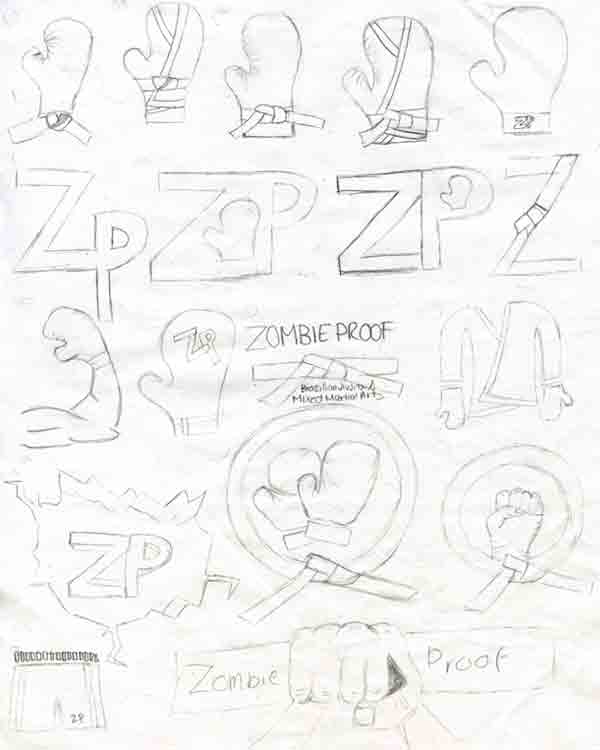 ZP
ZP
ZP
ZP
Z
ZP
ZOMBIE PROOF
Brazilian Jiujitsu &
Mixed Martial Arts
ZP
ZP
Zombie Proof